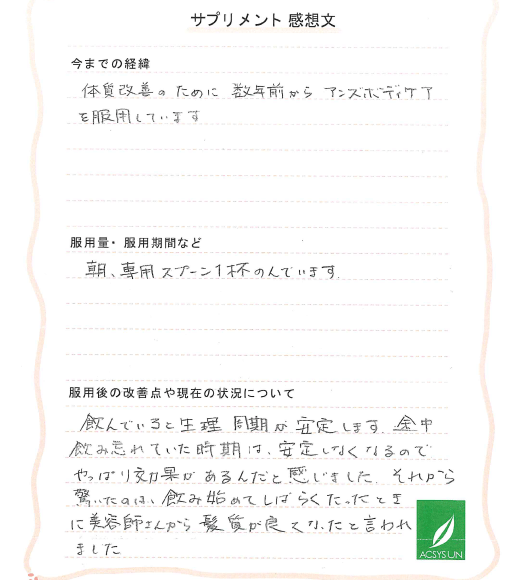 サプリメント 感想文
今までの経緯
体質改善のために 数年前から アンズボディケア
を服用しています
服用量・服用期間など
朝、専用スプーン1杯のんでいます。
服用後の改善点や現在の状況について
飲んでいると生理 周期が 安定します。途中
飲み忘れていた時期は、安定しなくなるので
やっぱり効果があるんだと感じました。それから
驚いたのは、飲み始めてしばらくたったとき
に美容師さんから 髪質が良くなったと言われ
ました
ACSYS UN